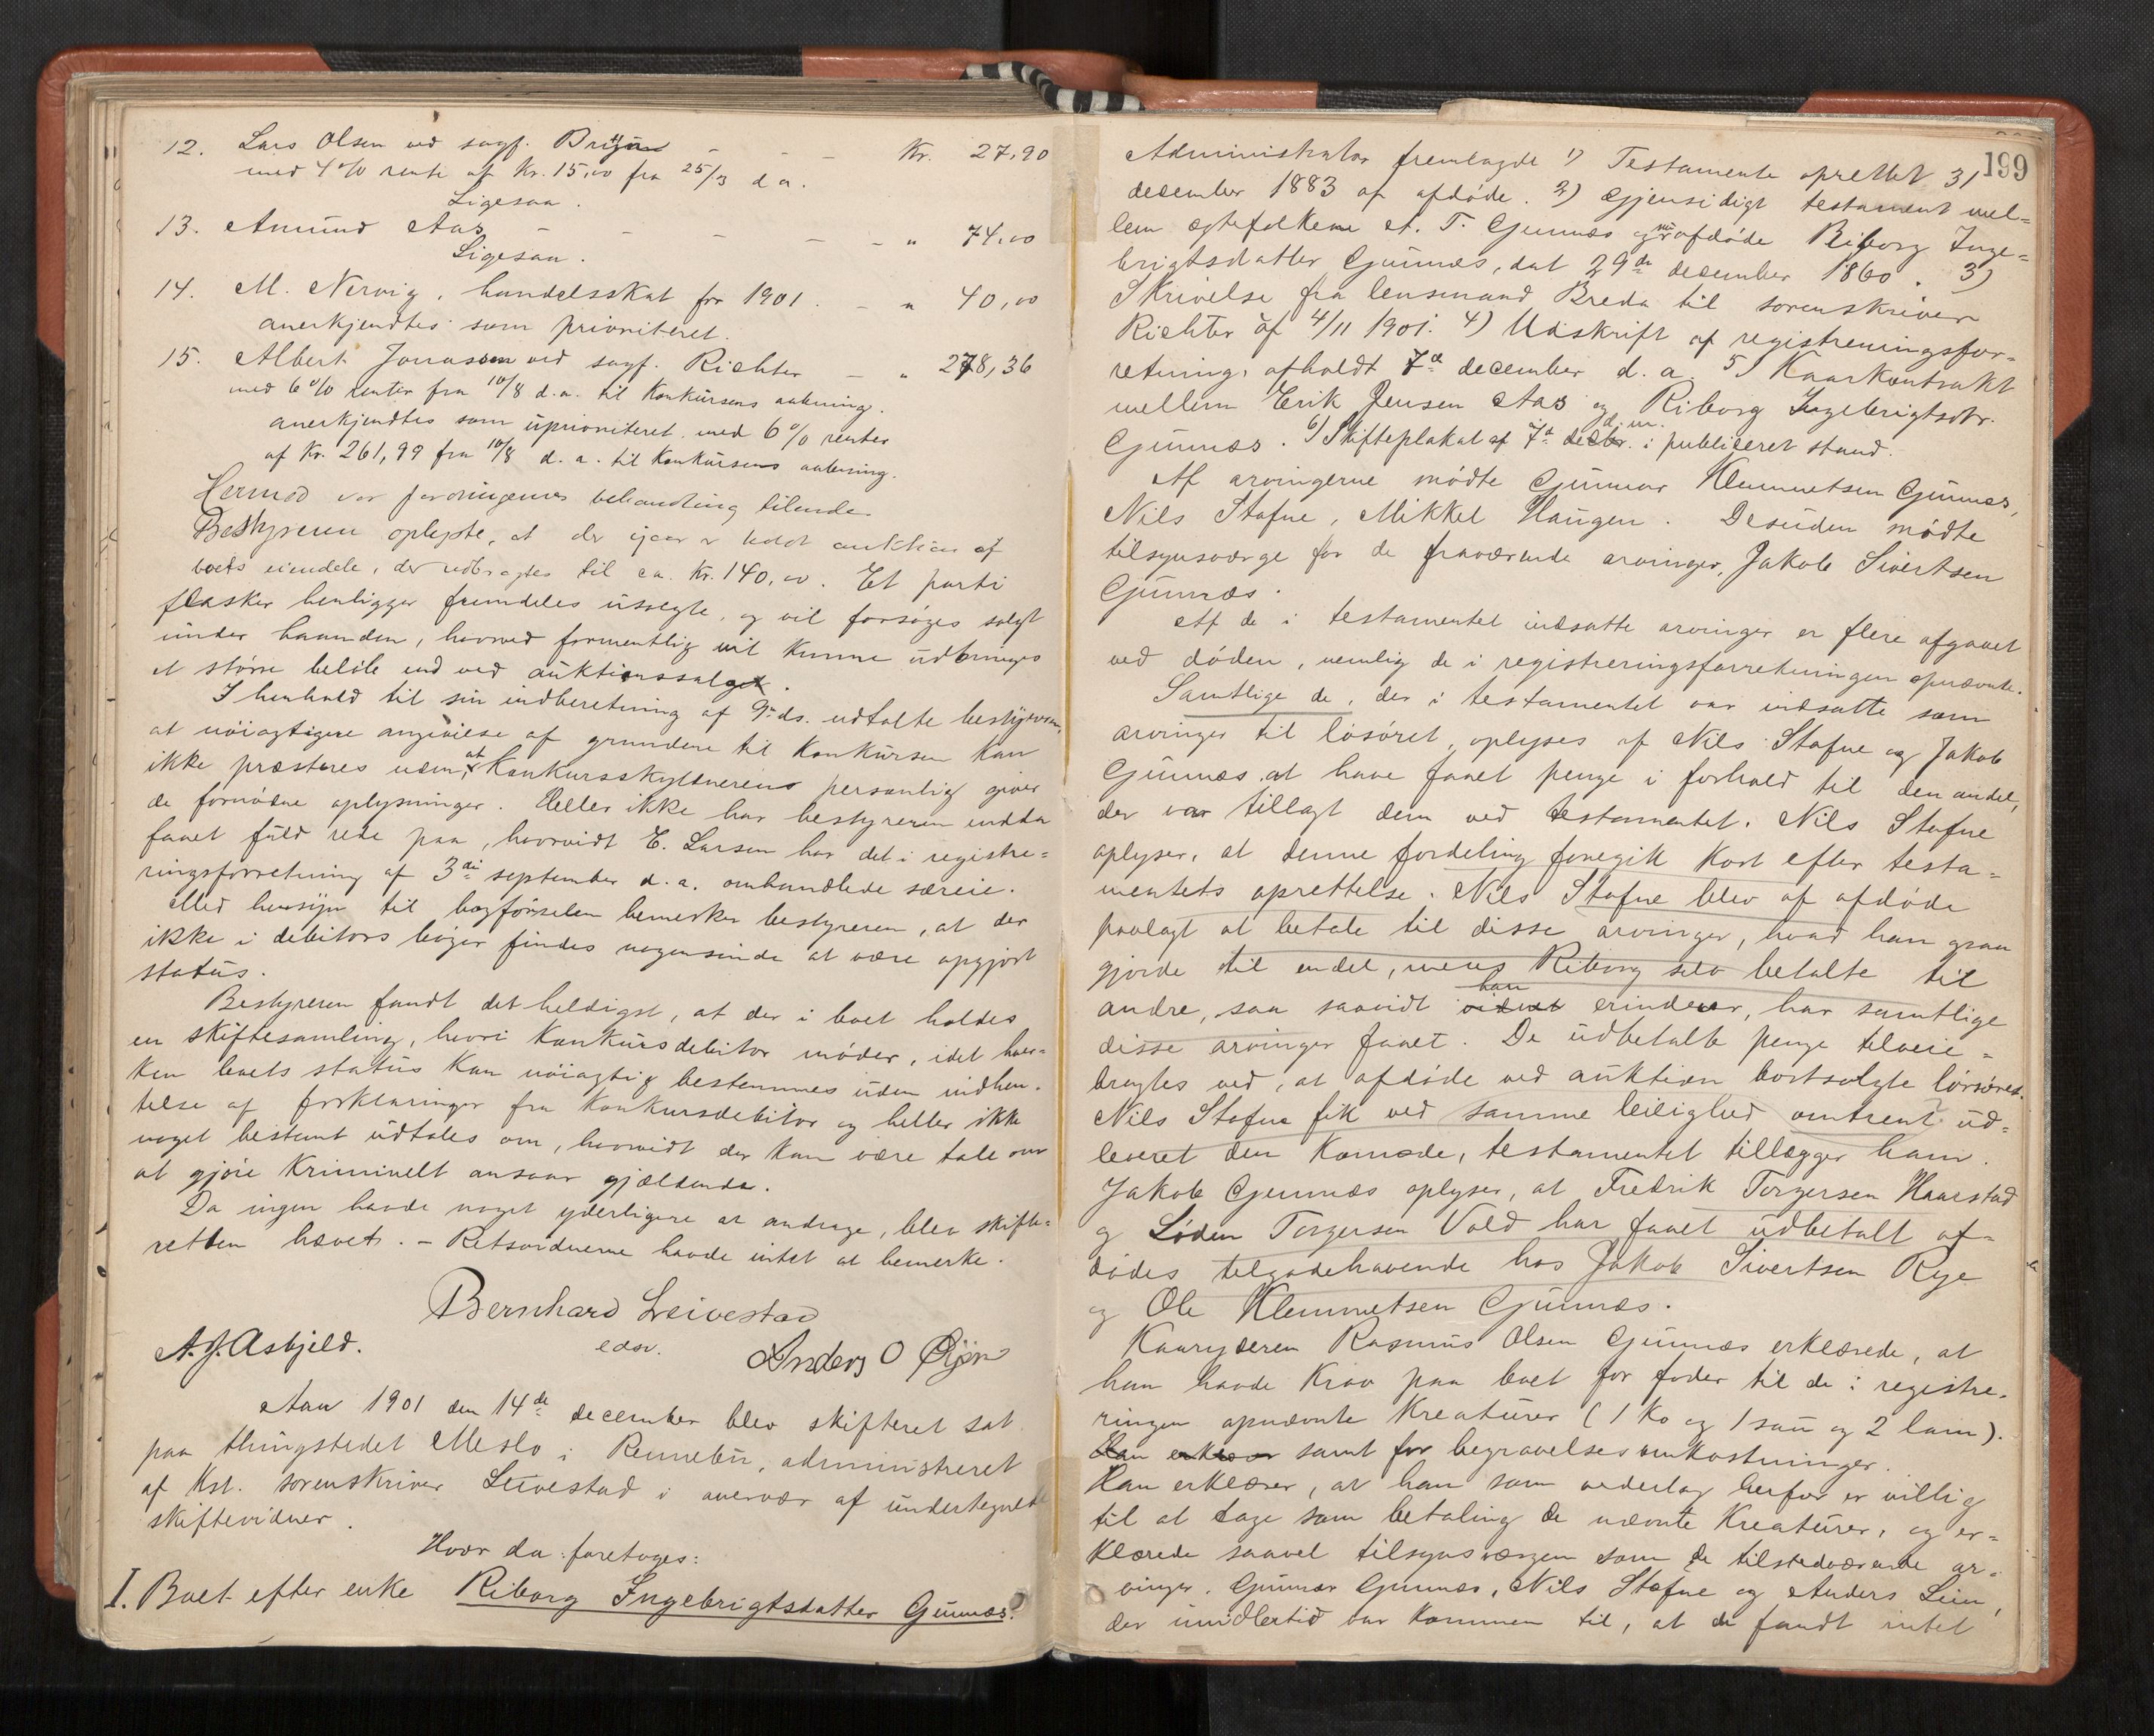 12. Lars Olsen ved sagf. - - - Kr. 27,90
med 4% rente af Kr. 15,00 fra 25/3 d.a.
Ligesaa.
13. Amund Aas - - - - - " 74,00
Ligesaa.
14. M. Nervig, handelsskat for 1901. - " 40,00
anerkjendtes som prioriteret.
15. Albert Jonassen ved sagf. Richter - " 278,36
med 6% renter fra 10/8 d.a. til Konkursens aabning.
anerkjendtes som uprioriteret med 6% renter
af Kr. 261,99 fra 10/8 d.a. til Konkursens aabning.
Hermed var fordringernes behandling tilende.
Bestyreren oplyste, at der igaar er holdt auktion af
boets eiendele, der udbragtes til ca. Kr. 140,00. Et parti
flasker henligger fremdeles usolgte, og vil forsøges solgt
under haanden, hvorved formentlig vil kunne udbringes
et større beløb end ved auktionssalget.
I henhold til sin indberetning af 9de ds. udtalte bestyreren,
at nøiagtigere angivelse af grundene til Konkursen kan
ikke præsteres uden at Konkursskyldneren personlig giver
de fornødne oplysninger. Heller ikke har bestyreren endda
faaet fuld rede paa, hvorvidt E. Larsen har det i registre=
ringsforretning af 3die september d.a. omhandlede særeie.
Med hensyn til bogførselen bemerker bestyreren, at der
ikke i debitors bøger findes nogensinde at være opgjort
status.
Bestyreren fandt det heldigst, at der i boet holdes
en skiftesamling, hvori Konkursdebitor møder, idet hver=
ken boets status kan nøiagtig bestemmes uden indhen=
telse af forklaringer fra Konkursdebitor og heller ikke
noget bestemt udtales om, hvorvidt der kan være tale om
at gjøre Kriminelt ansvar gjældende.
Da ingen havde noget yderligere at andrage, blev skifte=
retten hævet. - Retsvidnerne havde intet at bemerke.
Bernhard Leivestad
A. J. Asbjeld. edsv. Anders O Øijen
Aar 1901 den 14de december blev skifteret sat
paa thingstedet Meslo i Rennebu, administreret
af Kst. sorenskriver Leivestad i overvær af undertegnede
skiftevidner.
Hvor da foretoges:
I. Boet efter enke Riborg Ingebrigtsdatter Gunnæs.
199
Administrator fremlagde 1) Testamente oprettet 31
december 1883 af afdøde. 2) Gjensidigt testament mel=
lem egtefolkene A. T. Gunnæs og nu afdøde Riborg Inge=
brigtsdatter Gunnæs, dat 29de december 1860. 3)
Skrivelse fra lensmand Breda til sorenskriver
Richter af 4/11 1901. 4) Udskrift af registreringsfor=
retning, afholdt 7de december d.a. 5) Kaarkontrakt
mellem Erik Jensen Aas og Riborg Ingebrigtsdtr.
Gunnæs. 6) Skifteplakat af 7de d.m. i publiceret stand.
Af arvingerne mødte Gunnar Klemmetsen Gunnæs,
Nils Stafne, Mikkel Haugen. Desuden mødte
tilsynsværge for de fraværende arvinger, Jakob Sivertsen
Gunnæs.
Af de i testamentet indsatte arvinger er flere afgaaet
ved døden, nemlig de i registreringsforretningen opnævnte.
Samtlige de, der i testamentet var indsatte som
arvinger til løsøret, oplyses af Nils Stafne og Jakob
Gunnæs at have faaet penge i forhold til den andel,
der var tillagt dem ved testamentet. Nils Stafne
oplyser, at denne fordeling foregik kort efter testa=
mentets oprettelse. Nils Stafne blev af afdøde
paalagt at betale til disse arvinger, hvad han ogsaa
gjorde til endel, mens Riborg selv betalte til
andre, saa saavidt han erindrer, har samtlige
disse arvinger faaet. De udbetalte penge tilveie=
bragtes ved, at afdøde ved auktion bortsolgte løsøret.
Nils Stafne fik ved samme leilighed omtrent ud=
leveret den Komode, testamentet tillægger ham.
Jakob Gunnæs oplyser, at Fredrik Torgersen Haarstad
og Løden Torgersen Vold har faaet udbetalt af=
dødes tilgodehavende hos Jakob Sivertsen Rye
og Ole Klemmetsen Gunnæs.
Kaaryderen Rasmus Olsen Gunnæs erklærede, at
han havde Krav paa boet for foder til de i registre=
ringen opnævnte Kreaturer (1 Ko og 1 sau og 2 lam).
Han erklærer samt for begravelsesomkostninger.
Han erklærer, at han som vederlag herfor er villig
til at tage som betaling de nævnte Kreaturer, og er=
klærede saavel tilsynsværgen som de tilstedværende ar=
vinger, Gunnar Gunnæs, Nils Stafne og Anders Lien,
der imidlertid var kommen til, at de fandt intet